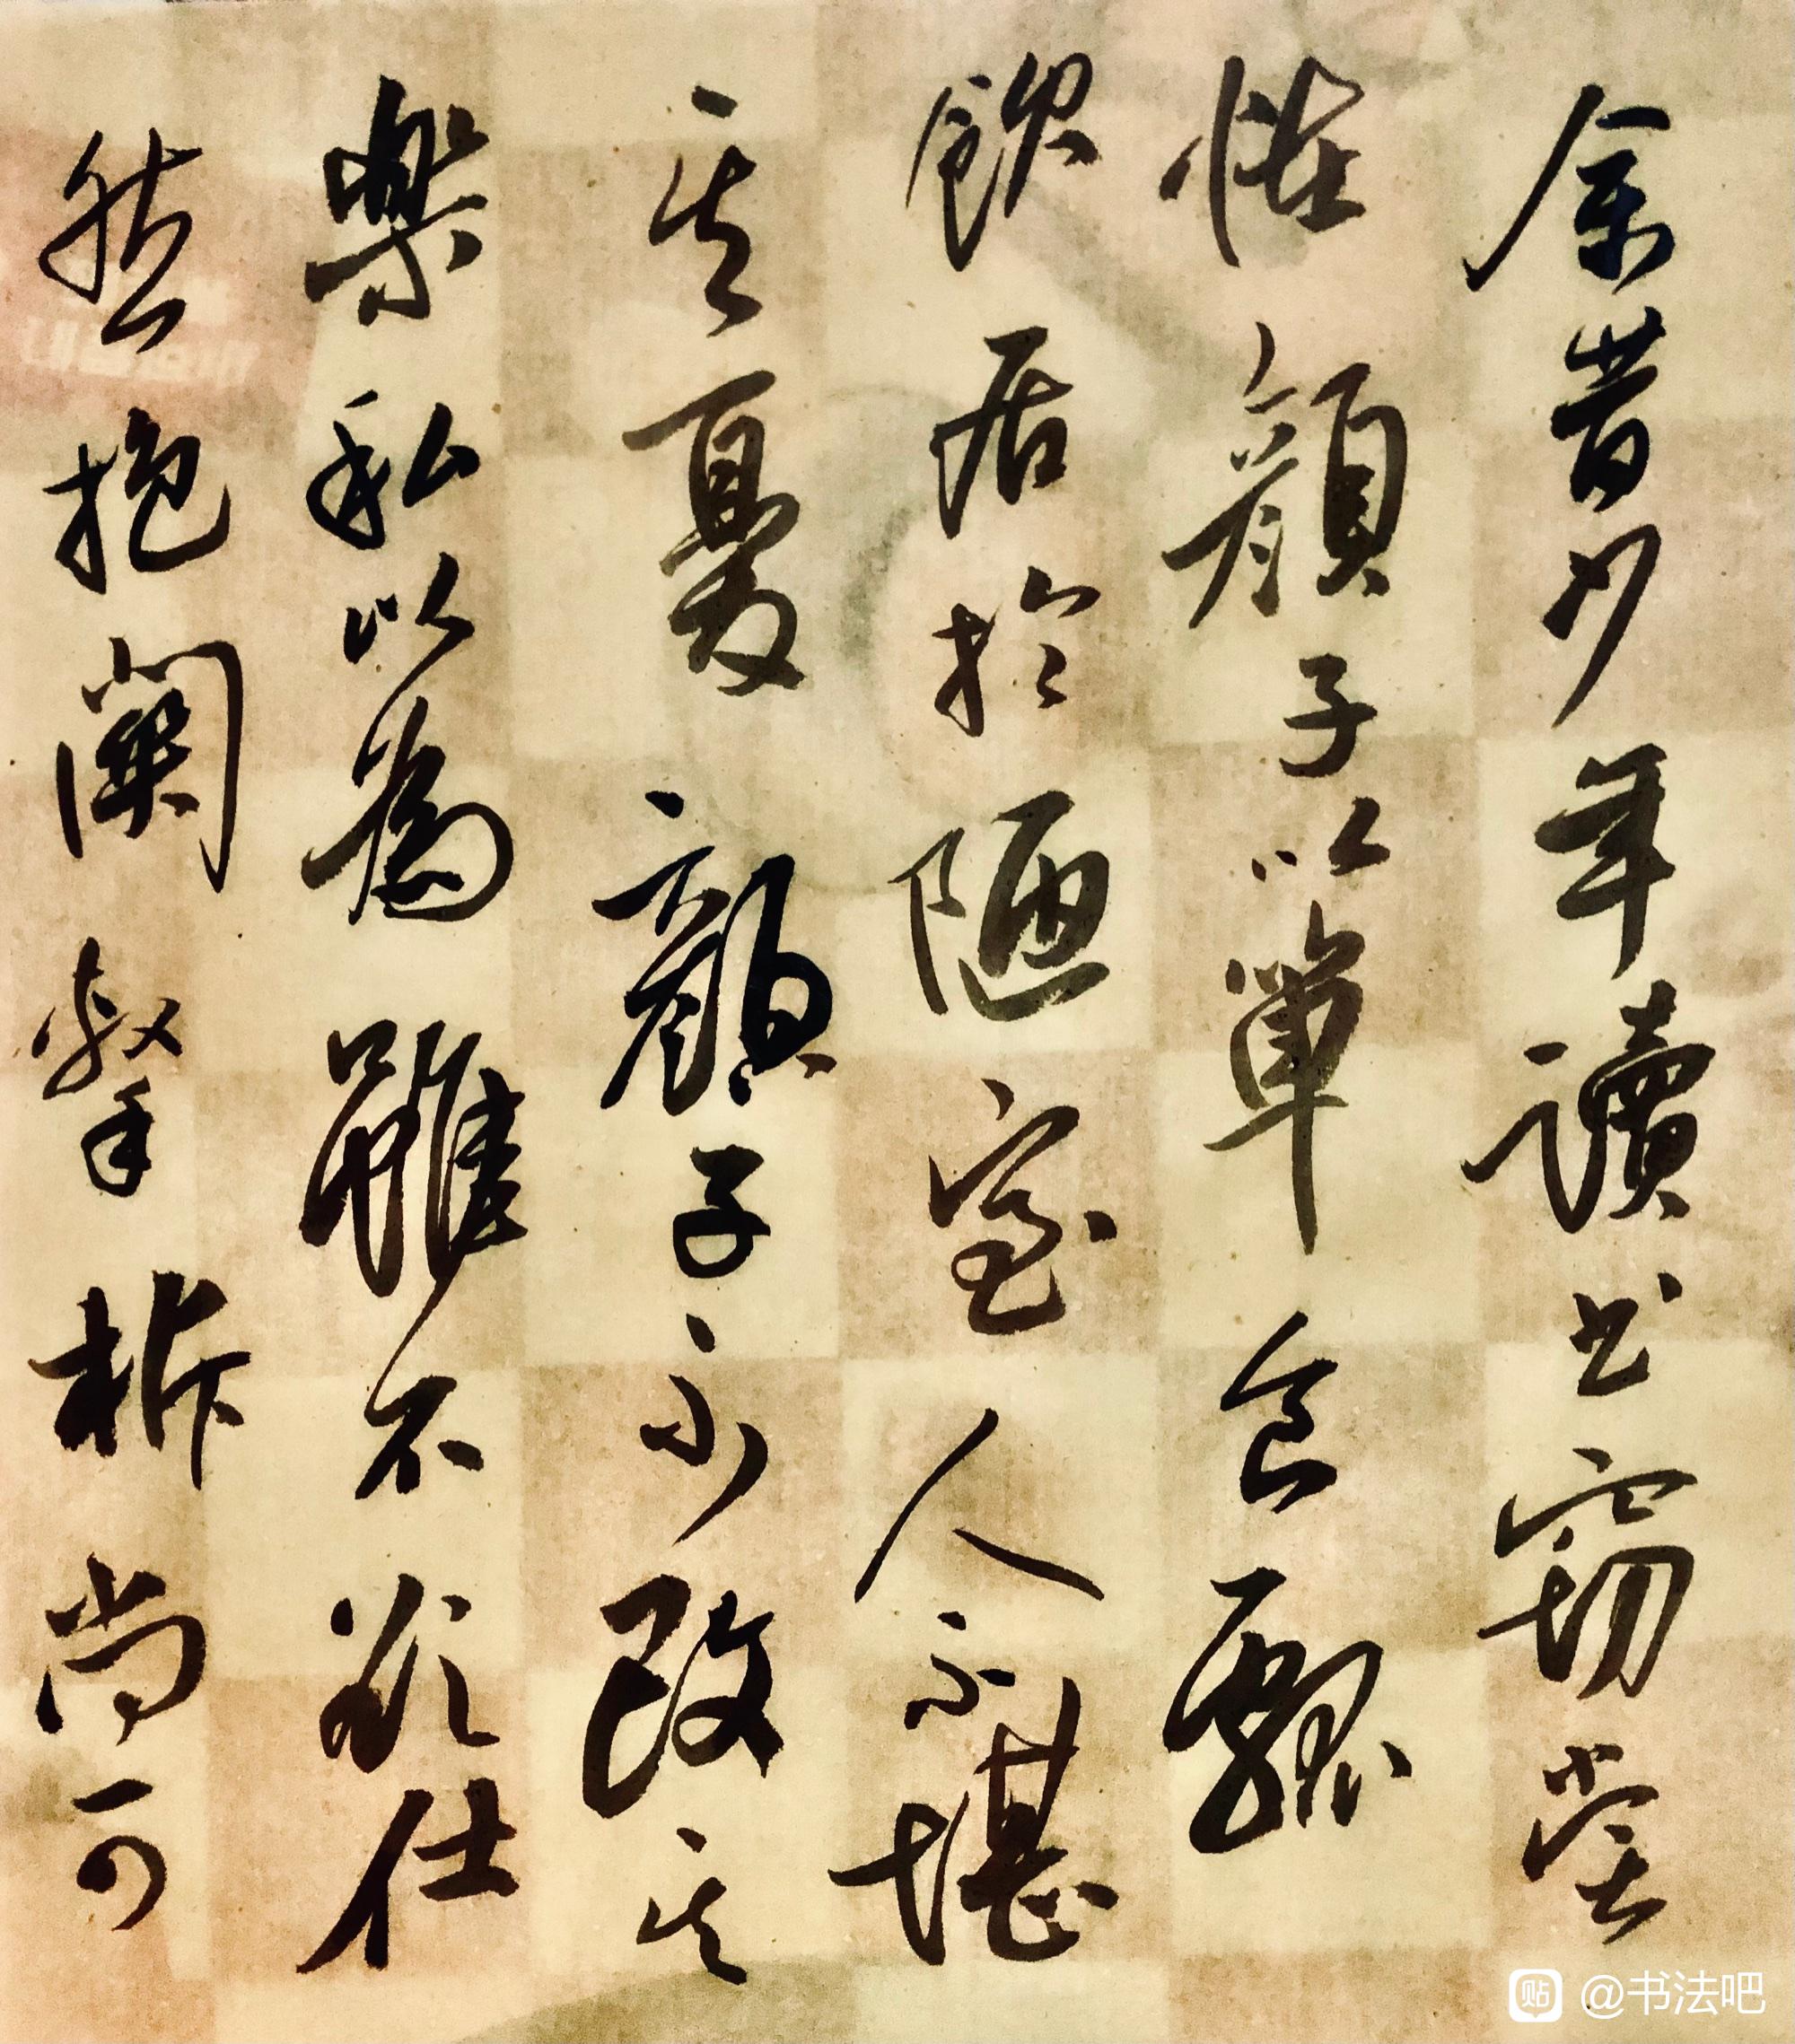 余昔少年讀書窃嘗
恠顏子以單食瓢
飲居於陋室人不堪
其憂顏子不改其
樂私以為雖不欲仕
然抱關擊柝尚可
貼 @书法吧